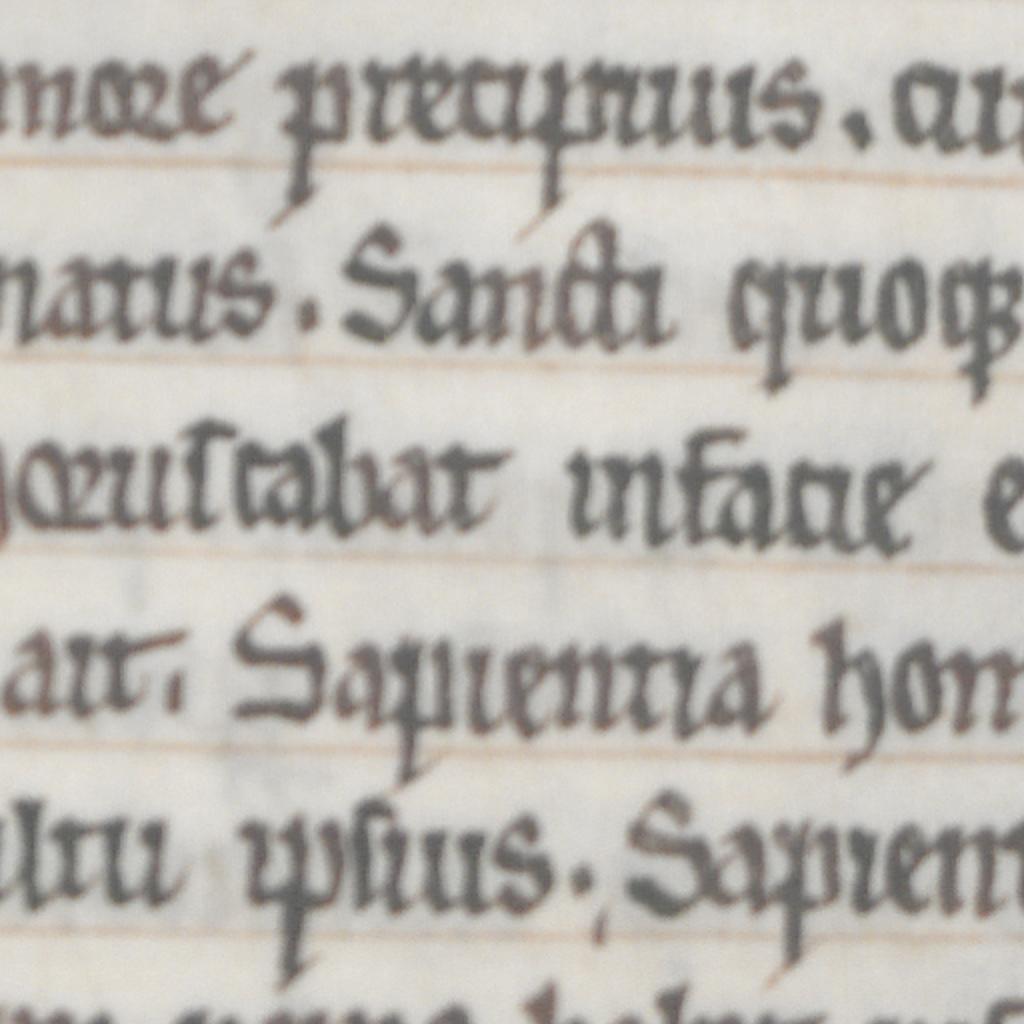 more precipuus. cu
natus. Sancti quoqꝫ
gœuſtabat infacie e
ait. Sapientia hom
ultu ipſius. Sapient